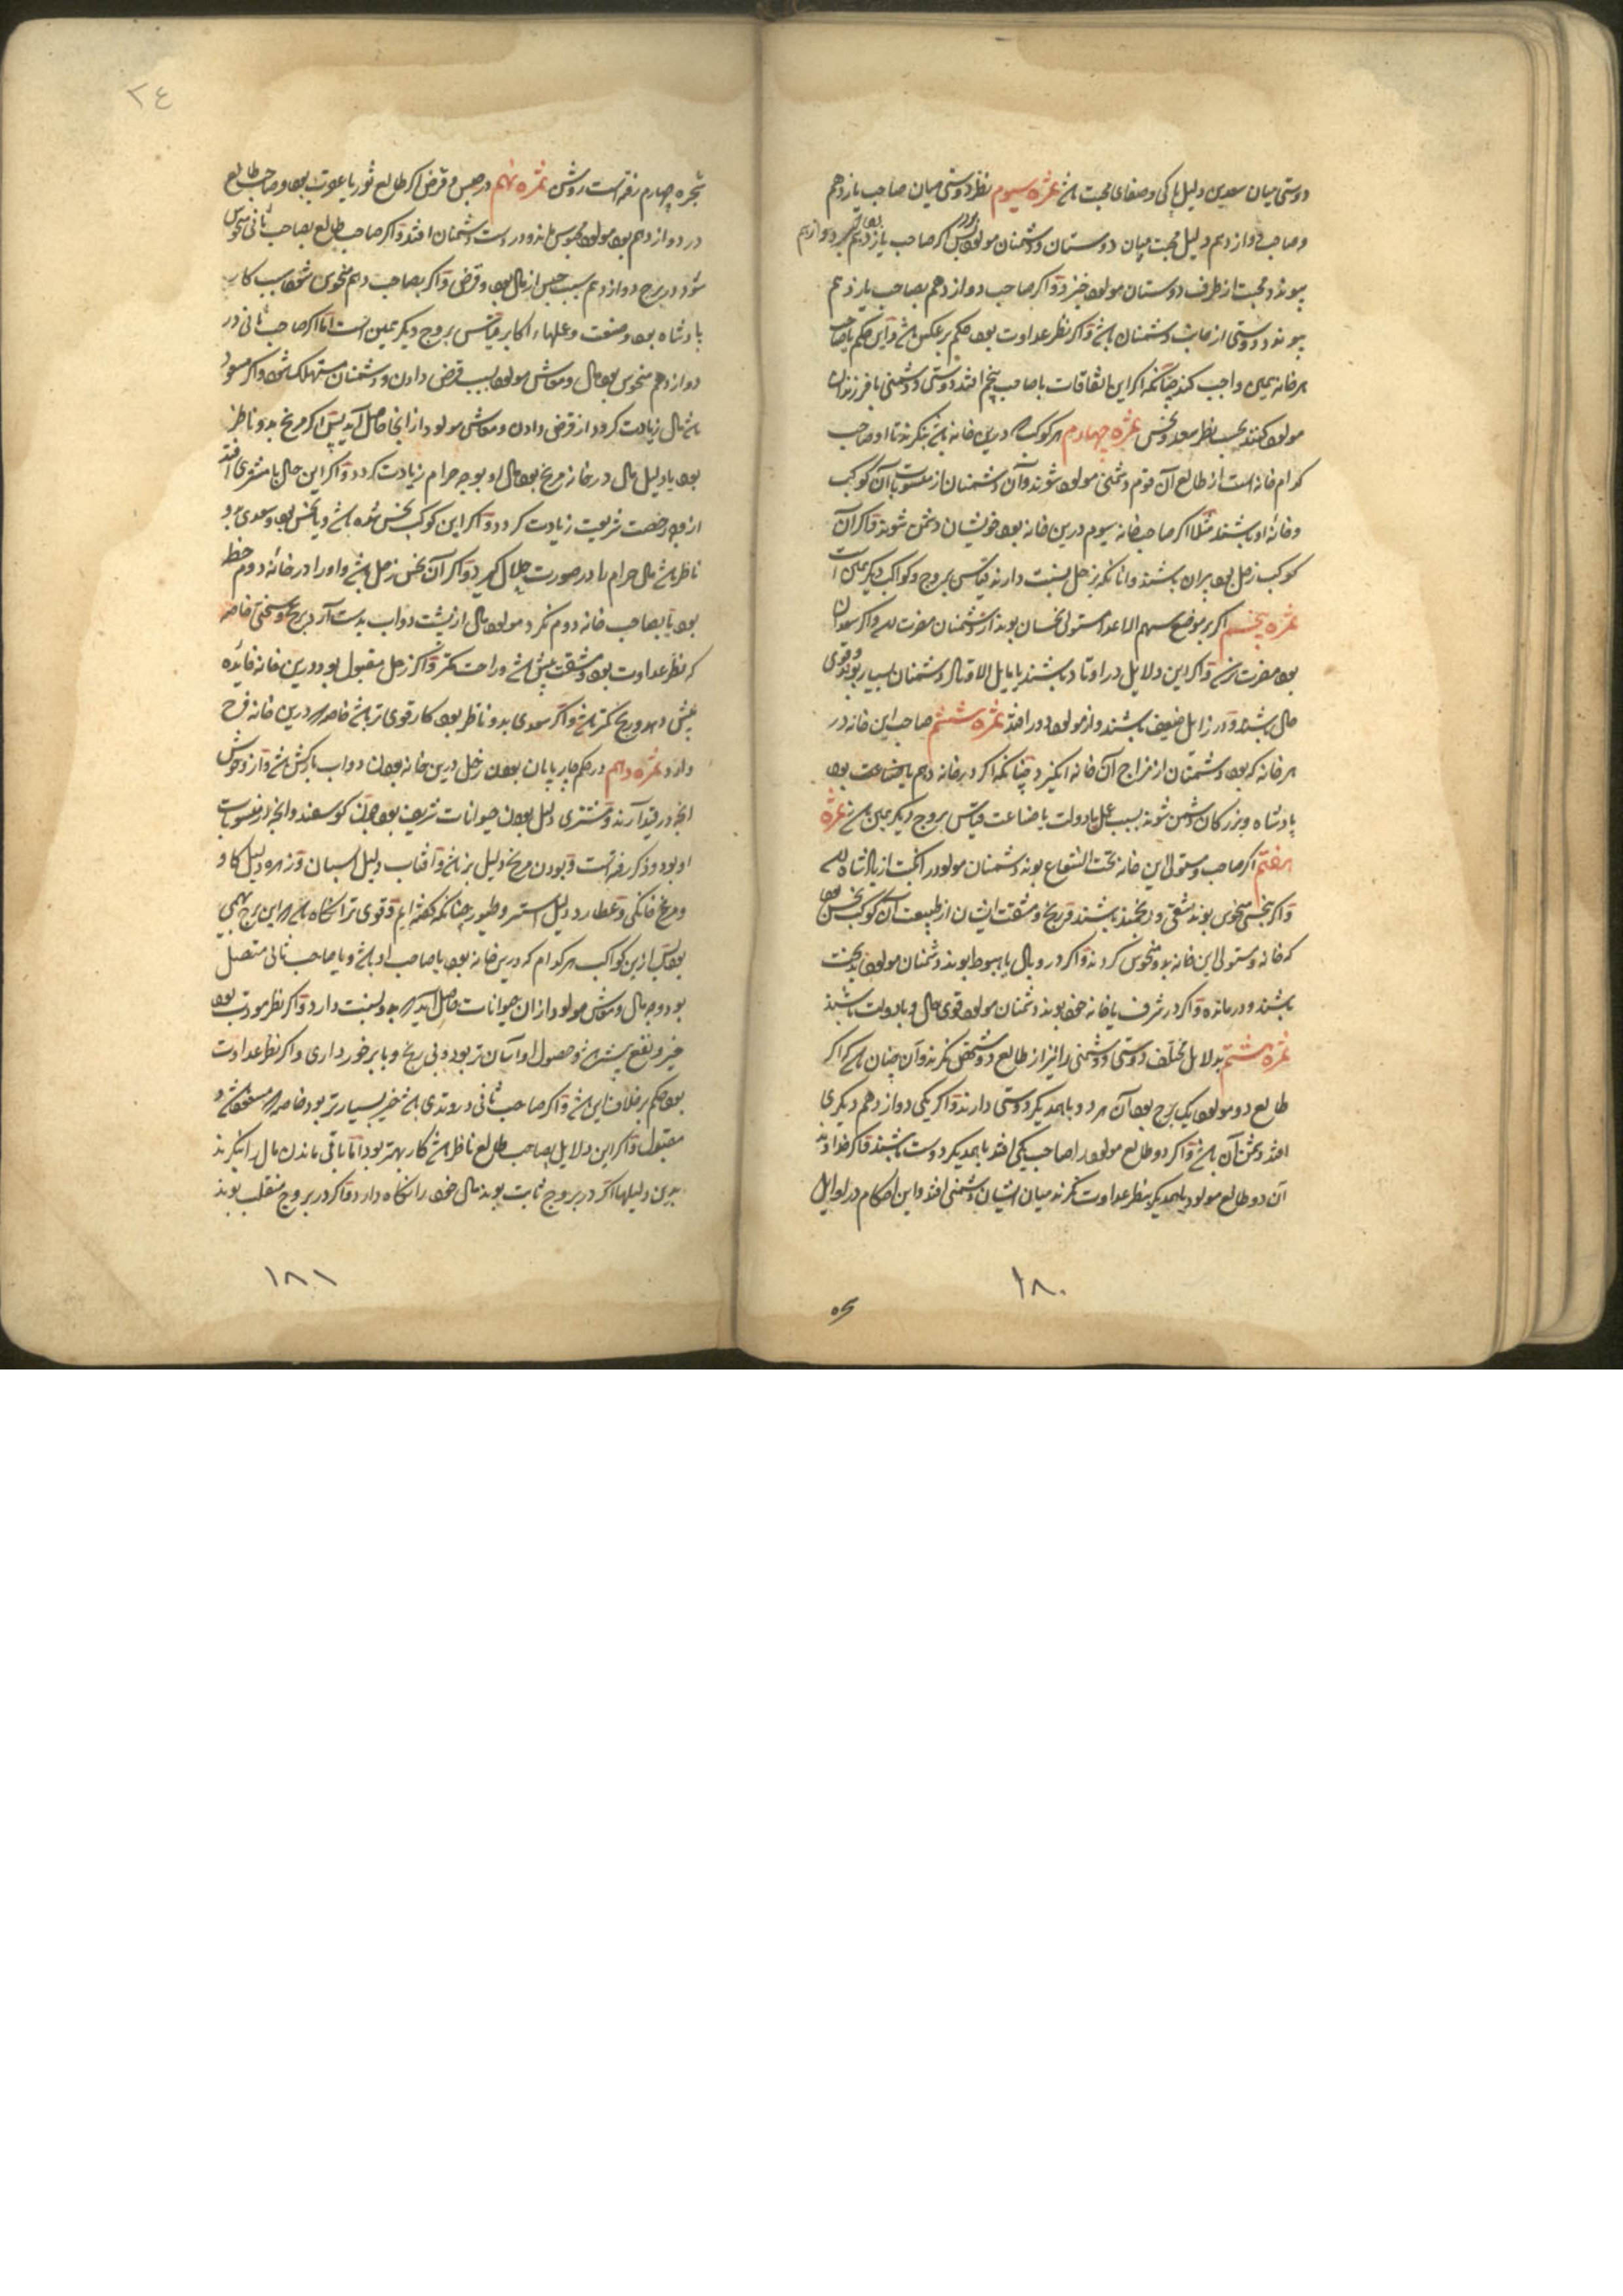 دوستی میان سعدین دلیل پاکی و صفای محبت باشد ثمره سیوم نظر دوستی میان صاحب یازدهم
و صاحب دوازدهم دلیل محبت میان دوستان و دشمنان مولود بود پس اگر صاحب یازدهم بصاحب دوازدهم
پیوندد محبت از طرف دوستان مولود خیزد و اگر صاحب دوازدهم بصاحب یازدهم
پیوندد دوستی از جانب دشمنان باشد و اگر نظر عداوت بود حکم بر عکس باشد و این حکم با صاحب
هر خانه همین واجب کند چنانکه اگر این اتفاقات با صاحب پنجم افتد دوستی و دشمنی با فرزندان
مولود کنند بحسب نظر سعد و نحس ثمره چهارم هر کوکب که درین خانه باشد بنگرند تا او صاحب
کدام خانه است از طالع آن قوم دشمن مولود شوند و آن دشمنان از منسوبات آن کوکب
و خانه او باشند مثلا اگر صاحب خانه سیوم درین خانه بود خویشان دشمن شوند و اگر آن
کوکب زحل بود پیران باشند و آنانکه بزحل نسبت دارند قیاس بروج و کواکب دیگر همین است
ثمره پنجم اگر بر موضع سهم الاعدا مستولی نحسان بوند از دشمنان مضرت رسد و اگر سعدان
بود مضرت نرسد و اگر این دلایل در اوتاد باشند یا مایل الاوتاد دشمنان بسیار بوند و قوی
حال باشند و در زایل ضعیف باشند و از مولود دور افتند ثمره ششم صاحب این خانه در
هر خانه که بود دشمنان از مزاج آن خانه انگیزد چنانکه اگر در خانه دهم یا بضاعت بود
پادشاه و بزرگان دشمن شوند بسبب عمل یا دولت یا صناعت قیاس بروج دیگر همین باشد ثمره
هفتم اگر صاحب و مستولی این خانه تحت الشعاع بوند دشمنان مولود را نکبت از پادشاه رسد
و اگر بنحسی منحوس بوند شقی و رنجمند باشند و رنج و مشقت ایشان از طبیعت آن کوکب نحس بود
که خانه و مستولی این خانه بدو منحوس گردند و اگر در وبال یا هبوط بوند دشمنان مولود بدبخت
باشند و درمانده و اگر در شرف یا خانه خود بوند دشمنان مولود قوی حال و با دولت باشند
ثمره هشتم بدلایل مختلف دوستی و دشمنی را نیز از طالع دو شخص نگرند و آن چنان باشد که اگر
طالع دو مولود یک برج بود آن هر دو با همدیگر دوستی دارند و اگر یکی دوازدهم دیگری
افتد دشمن آن باشد و اگر دو طالع مولود را صاحب یکی افتد با همدیگر دوست باشند و اگر خداوند
آن دو طالع مولود با همدیگر بنظر عداوت نگرند میان ایشان دشمنی افتد و این احکام در اوایل
۱۸۰
٢٤
شجره چهارم رفته است روشن ثمره نهم در حبس و قرض اگر طالع ثور یا عقرب بود و صاحب طالع
در دوازدهم بود مولود محبوس ماند و در دست دشمنان افتد و اگر صاحب طالع بصاحب ثانی منحوس
شود در برج دوازدهم سبب حبس از مال بود و قرض و اگر بصاحب دهم منحوس شود سبب کار
پادشاه بود و صنعت و عملها اکابر قیاس بروج دیگر همین است اما اگر صاحب ثانی در
دوازدهم منحوس بود مال و معاش مولود بسبب قرض دادن و دشمنان مستهلک شود و اگر مسعود
باشد مال زیادت گردد از قرض دادن و معاش مولود از آنجا حاصل آید پس اگر مریخ بدو ناظر
بود یا دلیل مال در خانه مریخ بود مال او بوجه حرام زیادت گردد و اگر این حال با مشتری افتد
از وجه رخصت شریعت زیادت گردد و اگر این کوکب نحس شده باشد و یا نحس بود و سعدی بدو
ناظر باشد مال حرام را در صورت حلال گیرد و اگر آن نحس زحل باشد و او را در خانه دوم حظ
بود یا بصاحب خانه دوم نگرد مولود مال از پشت دواب بدست آرد برنج و سختی خاصه
که نظر عداوت بود و مشقت بیش باشد و راحت کمتر و اگر زحل مقبول بود درین خانه فایده
بیش دهد و رنج کمتر باشد و اگر سعدی بدو ناظر بود کار قوی تر باشد خاصه که درین خانه فرح
دارد ثمره دهم در حکم چارپایان بودن زحل درین خانه بودن دواب بارکش باشد و از وحوش
آنچه در قید آرند و مشتری دلیل بودن حیوانات شریف بود چون گوسفند و آنچه از منسوبات
او بود و ذکر رفته است و بودن مریخ دلیل بز باشد و آفتاب دلیل اسبان و زهره دلیل گاو
و مرغ خانگی و عطارد دلیل استر و طیور چنانکه گفته ایم و قوی تر آنگاه باشد که این برج بهیمی
بود پس ازین کواکب هر کدام که درین خانه بود یا صاحب او باشد و یا صاحب ثانی متصل
بود وجه مال و معاش مولود از ان حیوانات حاصل آید که بدو نسبت دارد و اگر نظر مودت بود
خیر و نفع بیشتر باشد و حصول او آسان تر بود و بی رنج و با برخورداری و اگر نظر عداوت
بود حکم بر خلاف این باشد و اگر صاحب ثانی در وتدی باشد خیر بسیارتر بود خاصه که مسعود باشد و
مقبول و اگر این دلایل بصاحب طالع ناظر باشد کار بهتر بود اما باقی ماندن مال را بنگرند
بدین دلیلها اگر در بروج ثابت بوند مال خود را نگاه دارد و اگر در بروج منقلب بوند
۱۸۱